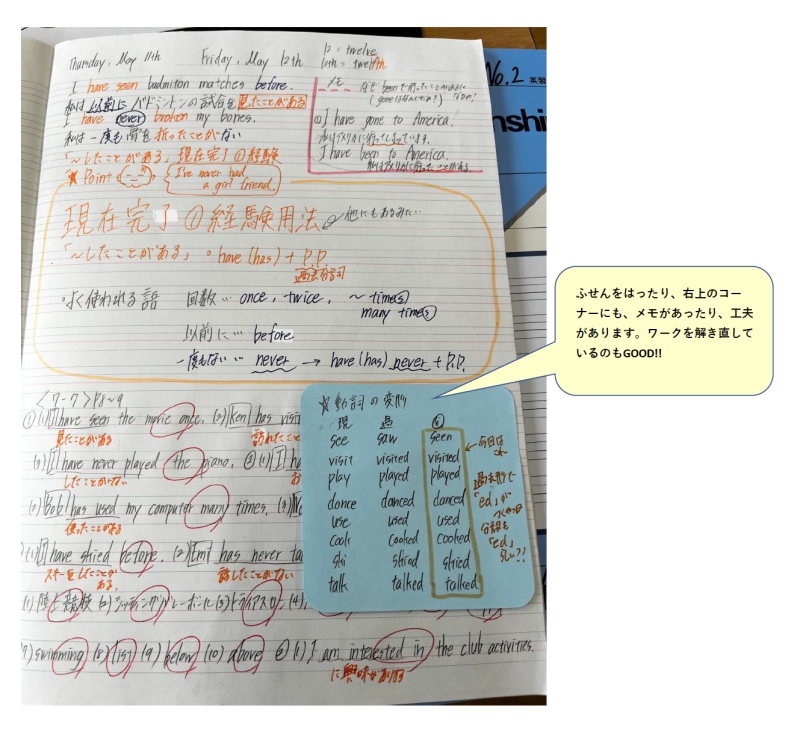 Thursday, May 11th Friday, May 12th
12 = twelve
12th = twelfth
I have seen badminton matches before.
私は以前にバドミントンの試合を見たことがある
I have never broken my bones.
私は一度も骨を折ったことがない
「~したことがある」現在完了①経験
★Point
I've never had
a girl friend.
メモ
①I have gone to America.
私はアメリカに行ってしまっています。
I have been to America.
私はアメリカに行ったことがある。
No.2 英習
nshi
現在完了①経験用法
他にもあるみたい
「~したことがある」・have(has)+P.P.
過去分詞
・よく使われる語 回数… once, twice, ~time(s)
many time(s)
以前に… before
一度もない… never → have(has) never + P.P.
<ワーク>P8~9
①(1)I have seen the movie once. (2)Ken has visi
見たことがある 訪れたこと
(3)I have never played the piano. ②(1)I ha
したことがない
(2)Bob has used my computer many times. (3)
使ったことがある
(1)I have skied before. (2)Emi has never ta
スキーをしたことが
ある。
話したことがない
(1)陸上競技 (2)シッティングバレーボール (3)トライアスロン (4)
(7)swimming (8)list (9)below (10)above ②(1)I am interested in the club activities.
に興味がある
★動詞の変形
現 過
see saw seen
visit visited visited
play played played
dance danced danced
use used used
cook cooked cooked
ski skied skied
talk talked talked
今回は
過去形で
「ed」が
つくやつは
分詞も
「ed」
らしい?!
ふせんをはったり、右上のコー
ナーにも、メモがあったり、工夫
があります。ワークを解き直して
いるのもGOOD!!